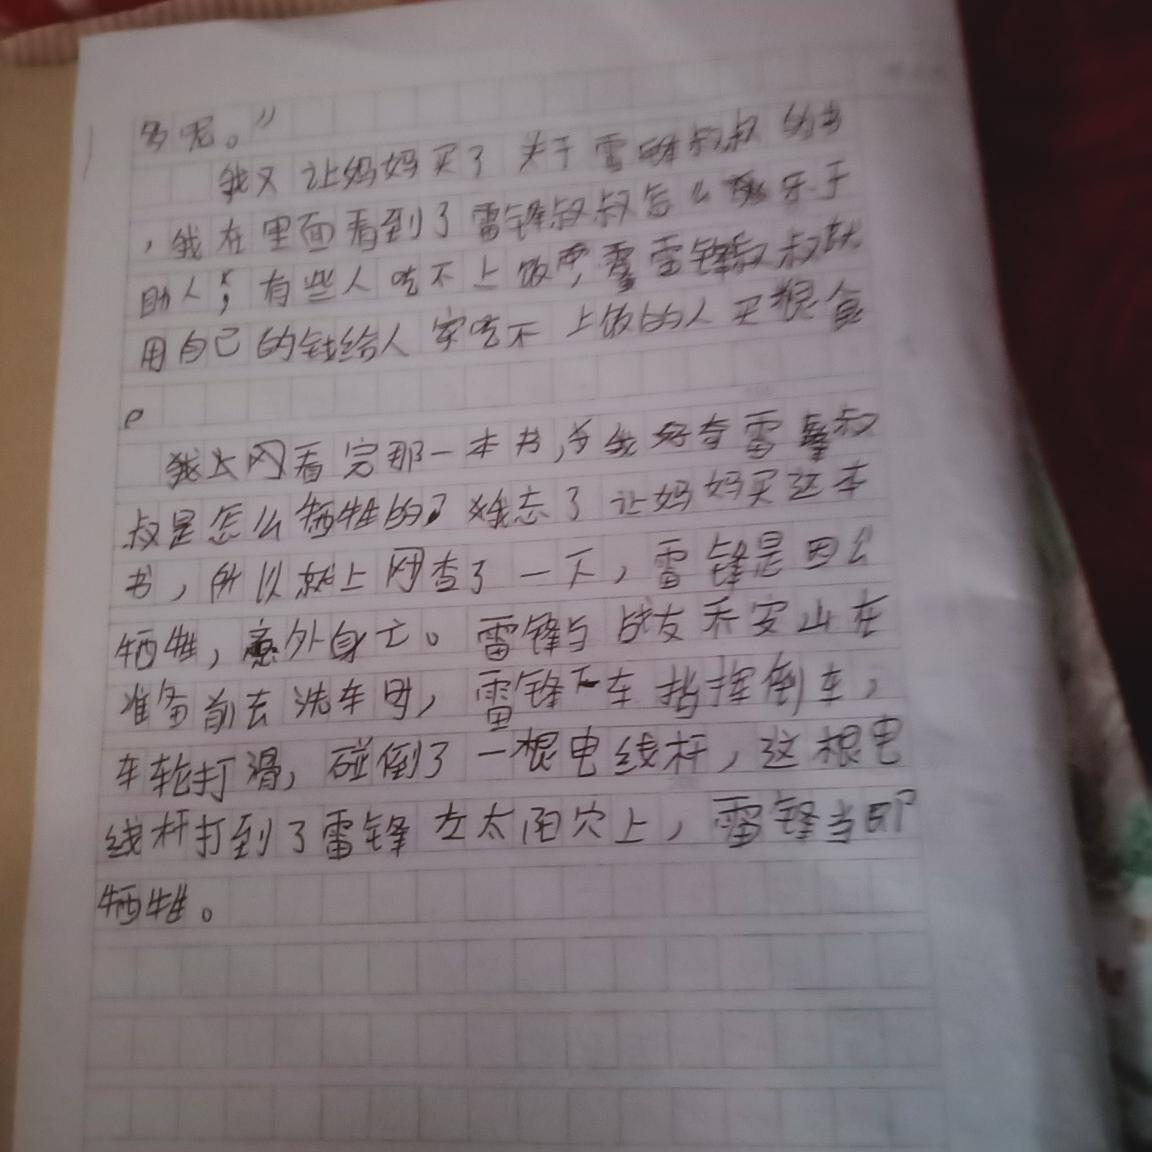 多呢。”
我又让妈妈买了关于雷锋叔叔的书
，我在里面看到了雷锋叔叔怎么乐于
助人；有些人吃不上饭，雷锋叔叔就
用自己的钱给人家吃不上饭的人买粮食
。
我上网看完那一本书，我好奇雷锋叔
叔是怎么牺牲的，忘了让妈妈买这本
书，所以就上网查了一下，雷锋是因公
牺牲，意外身亡。雷锋与战友乔安山在
准备前去洗车时，雷锋下车指挥倒车，
车轮打滑，碰倒了一根电线杆，这根电
线杆打到了雷锋左太阳穴上，雷锋当即
牺牲。